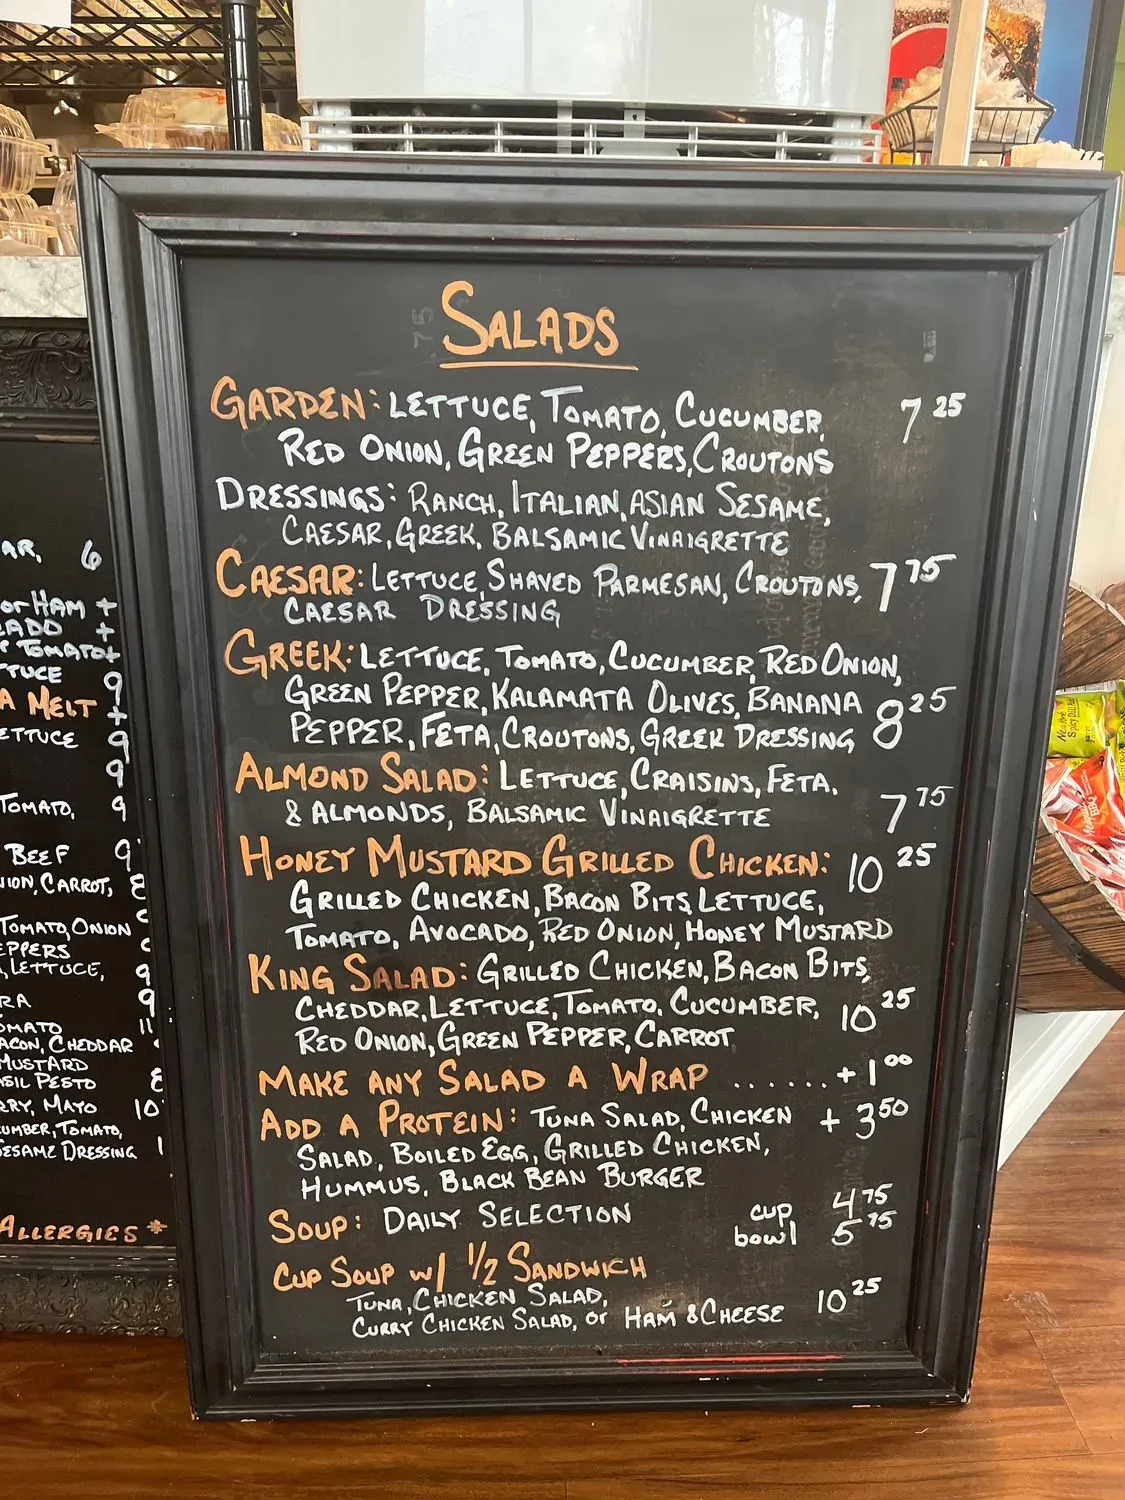 SALADS
GARDEN: LETTUCE, TOMATO, CUCUMBER, 7 25
RED ONION, GREEN PEPPERS, CROUTONS
DRESSINGS: RANCH, ITALIAN, ASIAN SESAME,
CAESAR, GREEK, BALSAMIC VINAIGRETTE
CAESAR: LETTUCE, SHAVED PARMESAN, CROUTONS, 7 75
CAESAR DRESSING
GREEK: LETTUCE, TOMATO, CUCUMBER, RED ONION,
GREEN PEPPER, KALAMATA OLIVES, BANANA 8 25
PEPPER, FETA, CROUTONS, GREEK DRESSING
ALMOND SALAD: LETTUCE, CRAISINS, FETA,
& ALMONDS, BALSAMIC VINAIGRETTE 7 75
HONEY MUSTARD GRILLED CHICKEN: 10 25
GRILLED CHICKEN, BACON BITS, LETTUCE,
TOMATO, AVOCADO, RED ONION, HONEY MUSTARD
KING SALAD: GRILLED CHICKEN, BACON BITS,
CHEDDAR, LETTUCE, TOMATO, CUCUMBER, 10 25
RED ONION, GREEN PEPPER, CARROT
MAKE ANY SALAD A WRAP ...... +1 00
ADD A PROTEIN: TUNA SALAD, CHICKEN + 3 50
SALAD, BOILED EGG, GRILLED CHICKEN,
HUMMUS, BLACK BEAN BURGER
SOUP: DAILY SELECTION cup 4 75
bowl 5 75
CUP SOUP w/ 1/2 SANDWICH
TUNA, CHICKEN SALAD, 10 25
CURRY CHICKEN SALAD, or HAM & CHEESE
6
or HAM +
+
TOMATO +
9
MELT +
LETTUCE 9
9
TOMATO, 9
BEEF 9
CARROT, 8
TOMATO, ONION
PEPPERS
LETTUCE, 9
9
11
BACON, CHEDDAR
MUSTARD
PESTO 8
MAYO 10
TOMATO,
SESAME DRESSING
ALLERGIES *